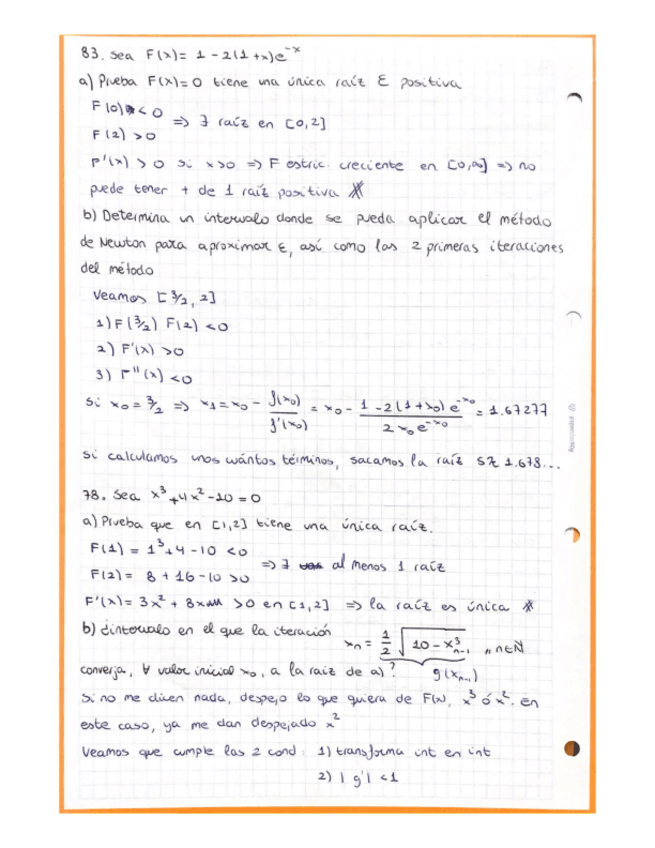 83. Sea F(x)= 1 - 2(1+x)e^-x
a) Prueba F(x)=0 tiene una única raíz ε positiva
F(0) < 0
F(2) >0
=> ∃ raíz en [0,2]
F'(x) >0 si x>0 => F estric. creciente en [0,∞] => no
puede tener + de 1 raíz positiva ※
b) Determina un intervalo donde se pueda aplicar el método
de Newton para aproximar ε, así como las 2 primeras iteraciones
del método
Veamos [3/2, 2]
1) F(3/2) F(2) <0
2) F'(x) >0
3) F''(x) <0
Si x0 = 3/2 => x1 = x0 - f(x0)/f'(x0) = x0 - (1 - 2(1+x0) e^-x0)/(2x0 e^-x0) = 1.67277
Si calculamos unos cuántos términos, sacamos la raíz 1.678...
78. Sea x^3+4x^2-10=0
a) Prueba que en [1,2] tiene una única raíz.
F(1) = 1^3+4-10 <0
F(2)= 8+16-10 >0
=> ∃ al menos 1 raíz
F'(x)= 3x^2 + 8x >0 en [1,2] => la raíz es única ※
b) ¿intervalo en el que la iteración xn = 1/2 √(10-x^3_n-1) , n∈N
converja, ∀ valor inicial x0, a la raiz de a)? g(xn-1)
Si no me dicen nada, despejo lo que quiera de F(x), x^3 ó x^2. En
este caso, ya me dan despejado x^2
Veamos que cumple las 2 cond: 1) transforma int en int
2) |g'| <1